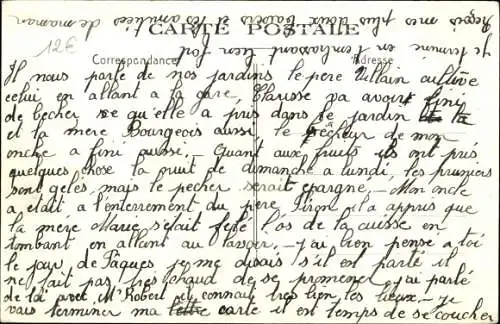 Reçois mes plus doux baisers et les amitiées de maman
Je termine en t'embrassant bien fort
CARTE POSTALE
12€
Correspondance
Adresse
Il nous parle de nos jardins le père Villain cultive
celui en allant à la gare, Clarisse va avoir fini
de becher ce qu'elle a pris dans le jardin la
et la mère Bourgeois aussi, le pêcheur de mon
oncle a fini aussi - Quant aux fruits ils ont pris
quelques chose la nuit de dimanche a lundi, les pruniers
sont gelés, mais le pecher serait épargné. - Mon oncle
a était a l'enterrement du père Piron, il a appris que
la mère Marie s'était fêlé l'os de la cuisse en
tombant en allant au lavoir. - j'ai bien pensé a toi
le jour de Pâques je me disais s'il est parti il
ne fait pas très chaud de se promener, j'ai parlé
de toi avec Mr Robert il connait très bien les lieux. - je
vais terminer ma lettre carte il est temps de se coucher